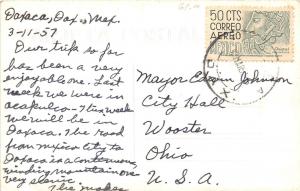 Oaxaca, Oax., Mex.
3-11-57
Our trip so far
has been a very
enjoyable one. Last
week we were in
Acapulco - This week
we will be in
Oaxaca. The road
from Mexico City to
Oaxaca is a continuous
winding mountain one
very scenic.
The
50 CTS
CORREO
AEREO
MEXICO
Mayor Johnson
City Hall
Wooster
Ohio
U. S. A.